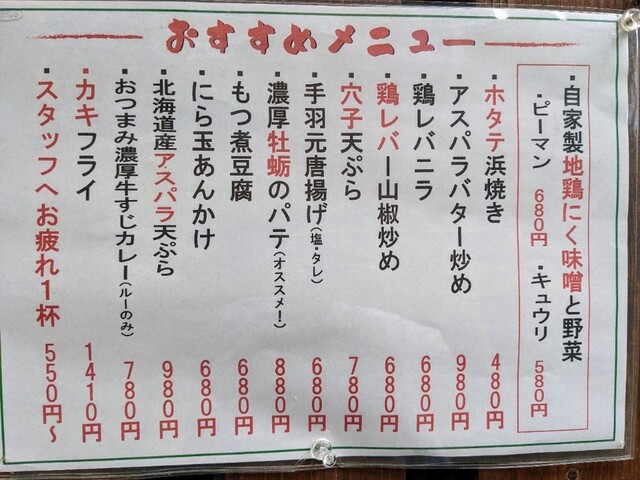 おすすめメニュー
・自家製地鶏にく味噌と野菜
・ピーマン 680円 ・キュウリ 580円
・ホタテ浜焼き 480円
・アスパラバター炒め 980円
・鶏レバニラ 680円
・鶏レバー山椒炒め 680円
・穴子天ぷら 780円
・手羽元唐揚げ(塩・タレ) 680円
・濃厚牡蛎のパテ(オススメー!) 880円
・もつ煮豆腐 680円
・にら玉あんかけ 680円
・北海道産アスパラ天ぷら 980円
・おつまみ濃厚牛すじカレー(ルーのみ) 780円
・カキフライ 1410円
・スタッフへお疲れ1杯 550円~